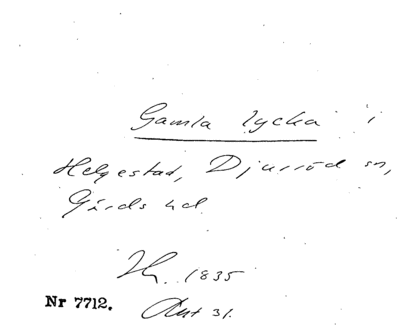 Gamla lycka i
Helgestad, Djurröd sn,
Gärds hd.
1835
Nr 7712. Akt 31.